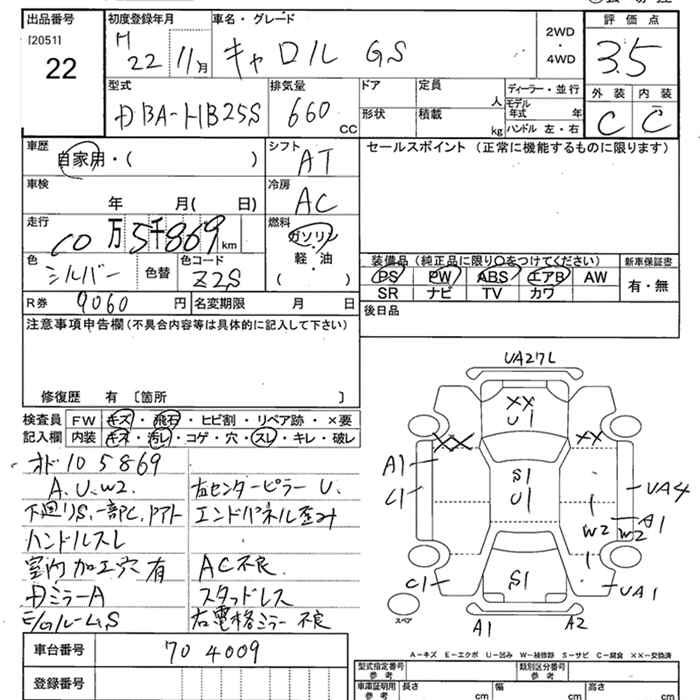 出品番号 初度登録年月 車名・グレード 2WD ・ 4WD 評価点
[2051] 22 H 22 11月 キャロル GS 3.5
型式 排気量 ドア 定員 人 ディーラー・並行 外装 内装
DBA-HB25S 660 CC 形状 積載 kg モデル年式 年 ハンドル 左・右 C C
車歴 シフト セールスポイント (正常に機能するものに限ります)
自家用・( ) AT
車検 冷房
年 月( 日) AC
走行 燃料
10万5千869km ガソリン
色 色替 色コード 軽・油 装備品 (純正品に限り○をつけてください) 新車保証書
シルバー Z2S ( ) PS PW ABS エアB AW 有・無
SR ナビ TV カワ
R券 9060 円 名変期限 月 日
後日品
注意事項申告欄 (不具合内容等は具体的に記入して下さい)
修復歴 有 〔箇所 〕
検査員 FW キズ・飛石・ヒビ割・リペア跡・×要
記入欄 内装 キズ・汚レ・コゲ・穴・スレ・キレ・破レ
オド105869
A.U.W2. 右センターピラーU.
下廻りS.一部C.ドアト エンドパネル歪み
ハンドルスレ
室内加工穴有 AC不良
DミラーA スタッドレス
E/GルームS 右電格ミラー不良
UA27L
XX
U1
XX XX
A1 S1
C1 U1 UA4
A1
W2 W2
C1 S1 UA1
スペア A1 A2
A-キズ E-エクボ U-凹み W-補修跡 S-サビ C-腐食 XX-交換済
車台番号 704009
登録番号
型式指定番号 参考 類別区分番号 参考
車庫証明用 参考 長さ cm 幅 cm 高さ cm